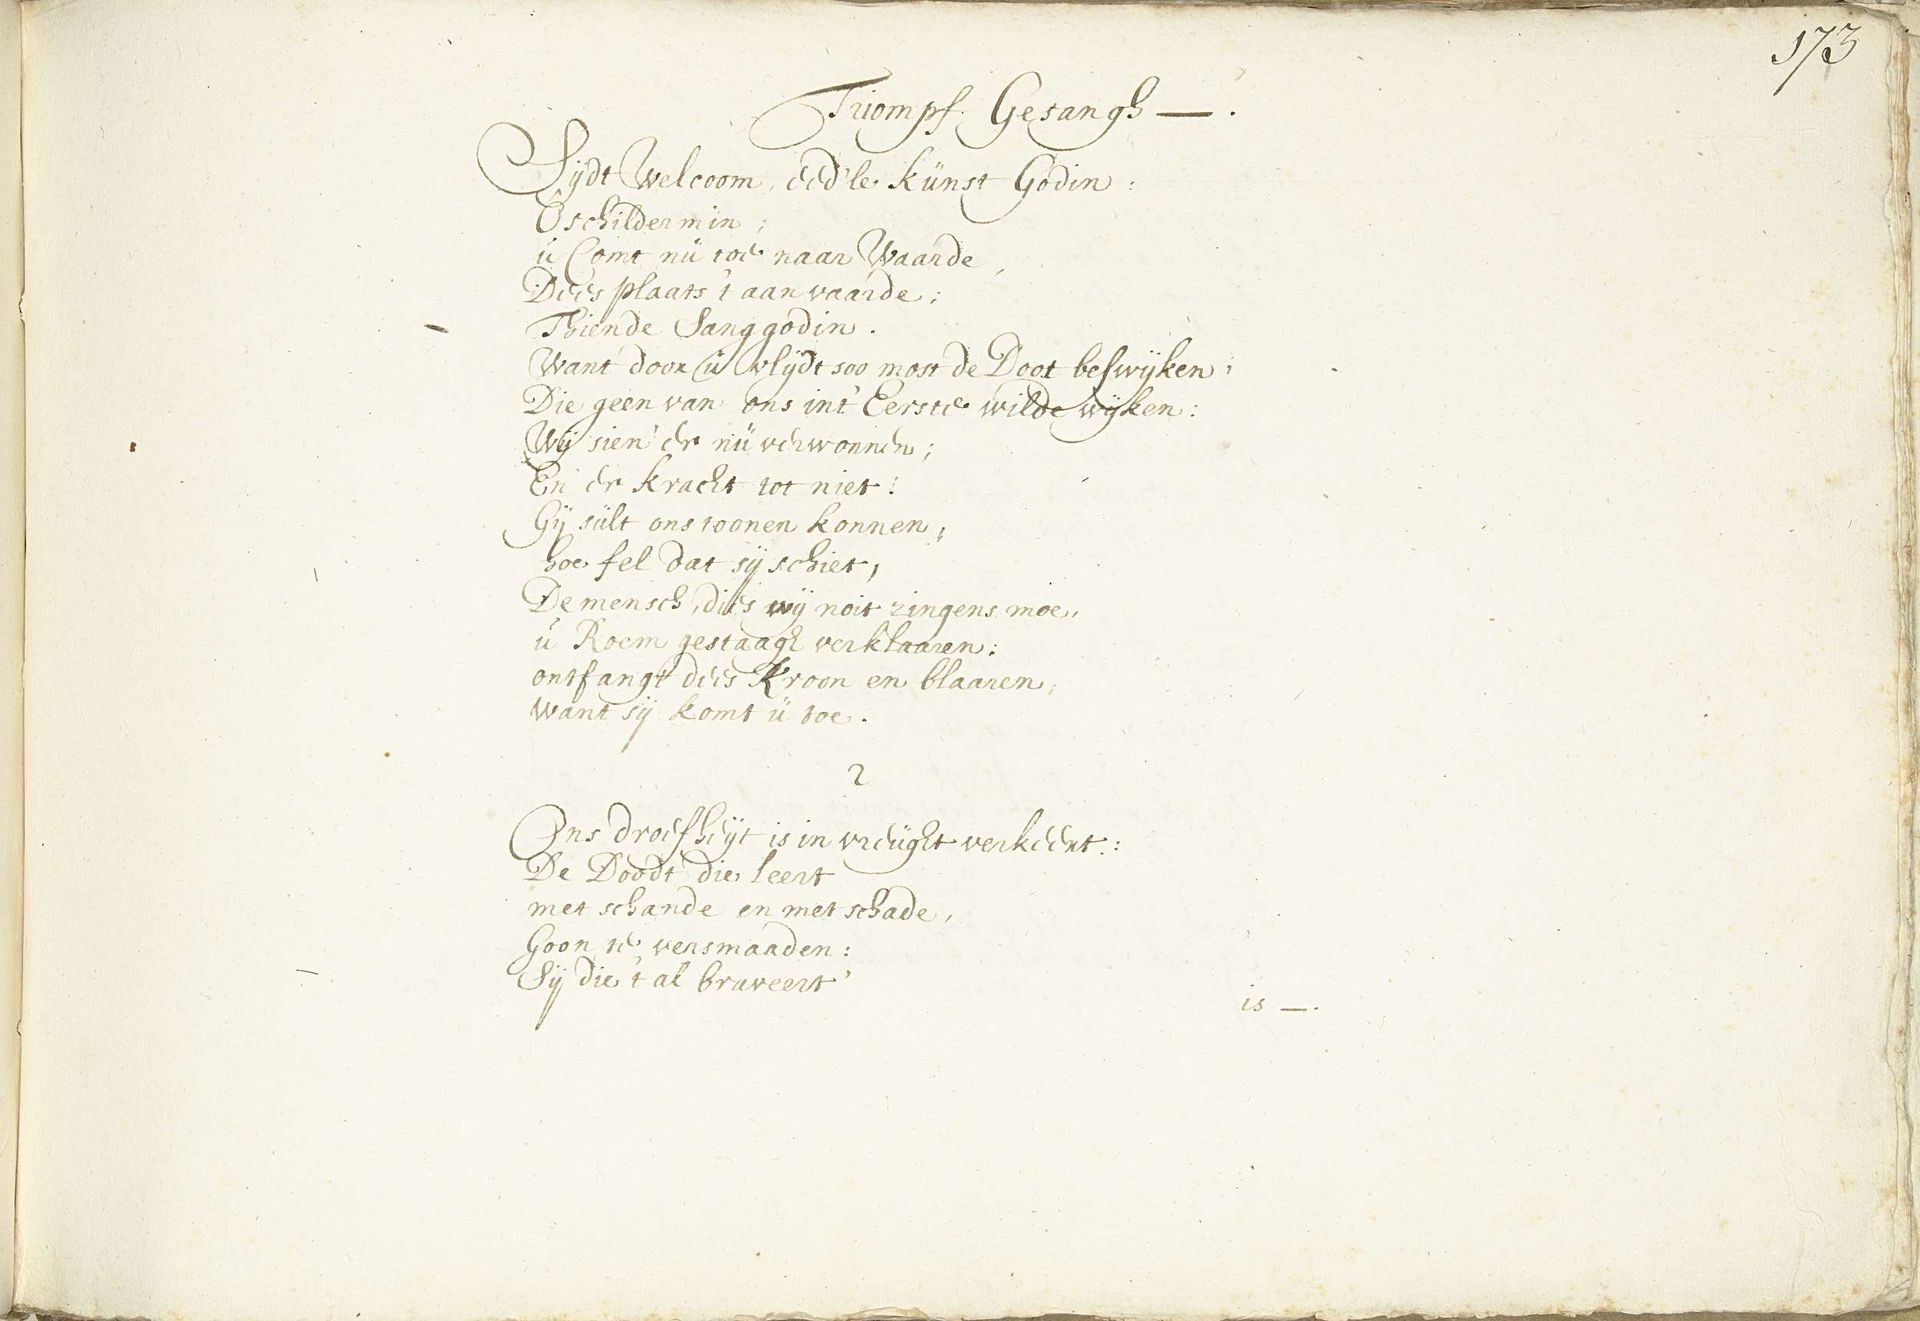 173
Triompf. Gesangh —.
Sijdt Welcoom, eed'le künst Godin:
O schildermin;
ü Comt nü toe naar Waarde,
Dees plaats 't aanvaarde;
Thiende Sanggodin.
Want door ü vlijdt soo most de Doot beswijken;
Die geen van ons int' Eerste wilde wijken:
Wij sien' er nü verwonnen;
En er kracht tot niet:
Gij sült ons toonen konnen,
hoe fel dat sij schiet,
De mensch, dies wij noit zingens moe,
ü Roem gestaagh verklaaren:
ontfangt dees Kroon en blaaren,
Want sij komt ü toe.
2
Ons droefheijt is in vreüght verkeert:
De Doodt die leert
met schande en met schade,
Goon te versmaaden:
Sij die 't al braveert'
is —.